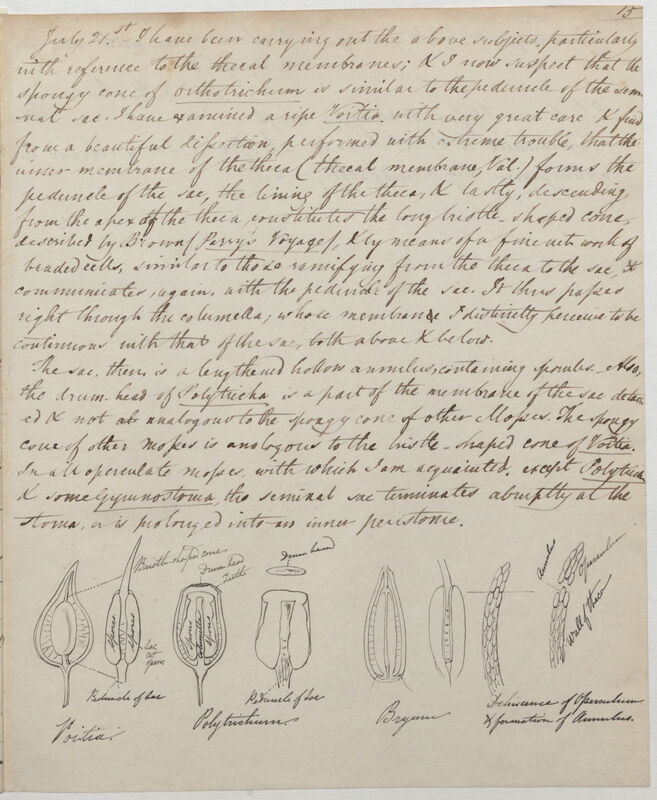 15
July 21.st I have been carrying out the above subjects, particularly
with reference to the thecal membranes; & I now suspect that the
spongy cone of Orthotrichum is similar to the peduncle of the semi-
nal sac. I have examined a ripe Voitia with very great care & find
from a beautiful dissection, performed with extreme trouble, that the
inner membrane of the theca (thecal membrane, Val.) forms the
peduncle of the sac, the lining of the theca, & lastly, descending
from the apex of the theca, constitutes the long bristle-shaped cone,
described by Brown (Parry's Voyage), & by means of a fine net work of
beaded cells, similar to those ramifying from the theca to the sac, it
communicates, again, with the peduncle of the sac. It thus passes
right through the columella; whose membrane I distinctly perceive to be
continuous with that of the sac, both above & below.
The sac, then, is a lengthened hollow annulus, containing sporules. Also,
the drum-head of Polytricha is a part of the membrane of the sac detach
ed & not analogous to the spongy cone of other Mosses. The spongy
cone of other mosses is analogous to the bristle-shaped cone of Voitia.
In all operculate mosses, with which I am acquainted, except Polytricha
& some Gymnostoma, the seminal sac terminates abruptly at the
stoma, or is prolonged into an inner peristome.
Bristle shaped cone
Drum head
Teeth
Drum head
Annulus
Operculum
Wall of theca
Spores
Spores
Sac
cut
open
Spores
Columella
Spores
Peduncle of Sac
Peduncle of Sac
Voitia.
Polytrichum
Bryum
Dehiscence of Operculum
& formation of Annulus.